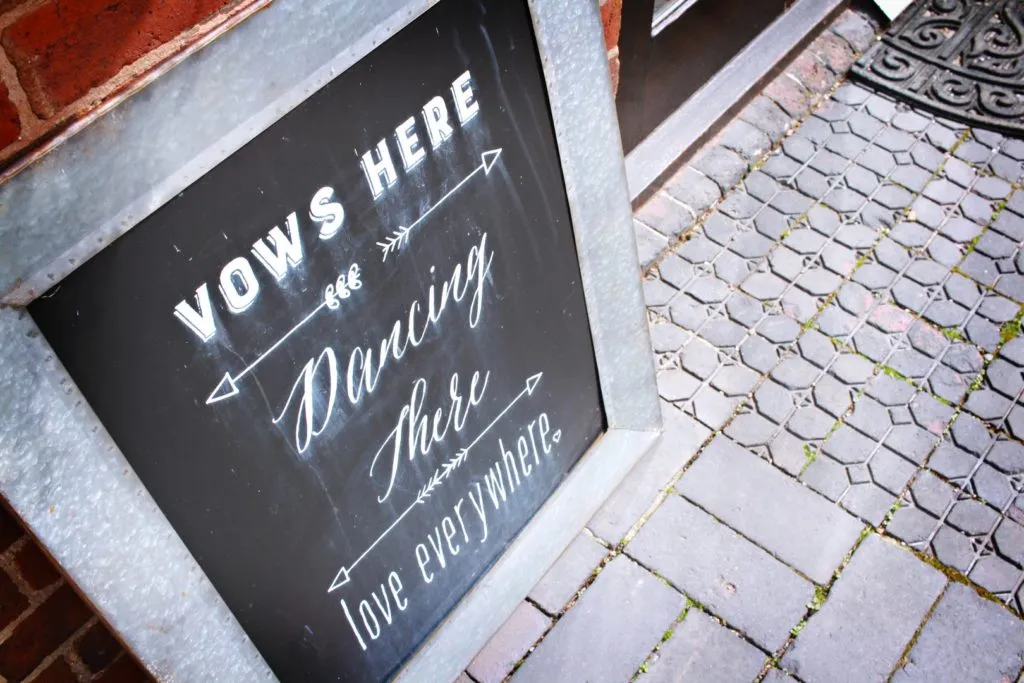 VOWS HERE
Dancing
There
love everywhere.